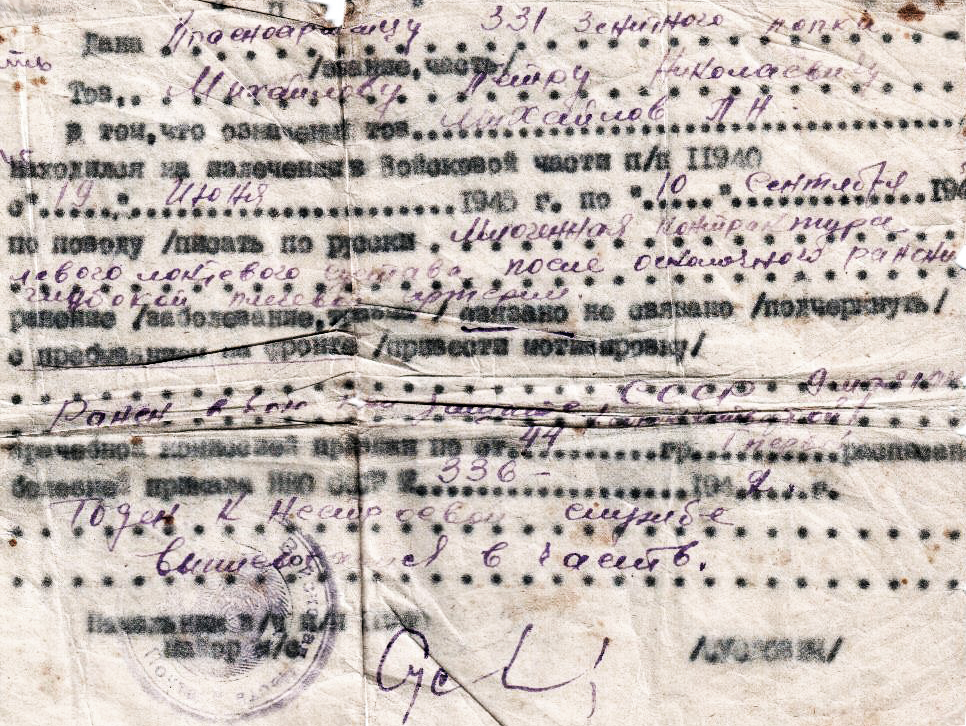 Дана Красноармейцу 331 Зенитного полка
/звание, часть/
Тов. Михайлову Петру Николаевичу
в том, что означенный тов. Михайлов П Н.
находился на излечении в Войсковой части п/п 11940
с "19" Июня 1945 г. по "10" Сентября 194
по поводу /писать по русски Миогенная контрактура
левого локтевого сустава после осколочного ранения
глубокой плечевой артерии.
ранение /заболевание, / связано не связано /подчеркнуть/
с пребыванием на фронте /привести мотивировку/
Ранен в бою при защите СССР
врачебной комиссией признан по ст. 44 гр. I расписания
болезней приказа НКО СССР № 336 - 194 2 г.
Годен к нестроевой службе
выписывается в часть.
Начальник в/ч п/п
Майор м/с